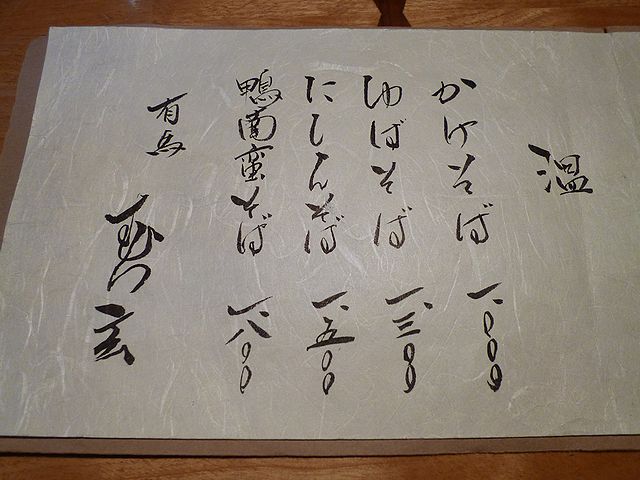 温
かけそば 一、〇〇〇
ゆばそば 一、三〇〇
にしんそば 一、五〇〇
鴨南蛮そば 一、八〇〇
有馬
玄